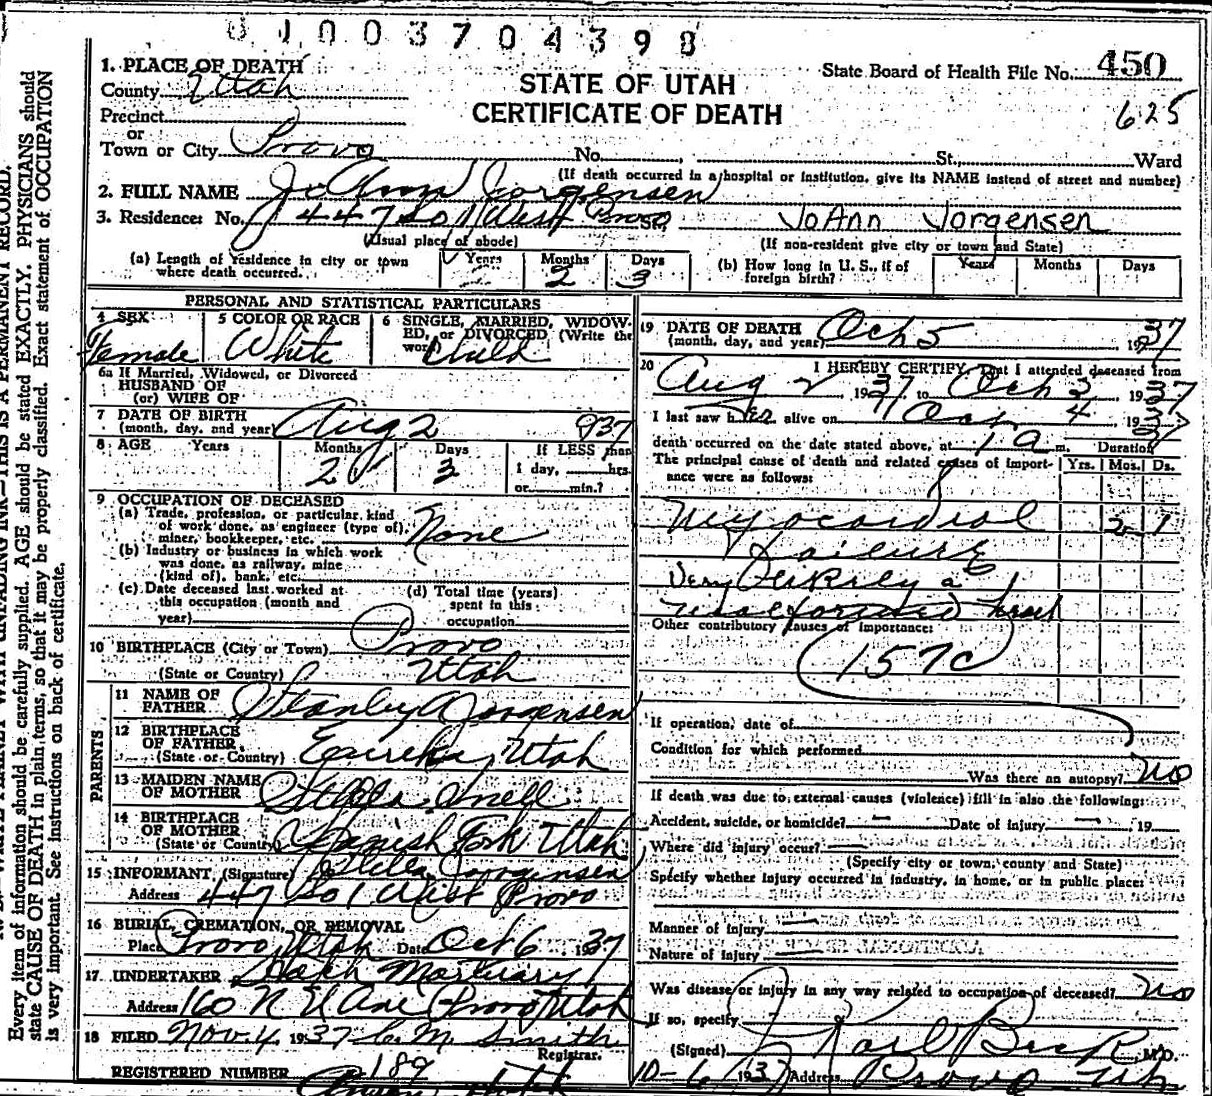 0 1 0 0 3 7 0 4 3 9 8
1. PLACE OF DEATH
County Utah
Precinct
or
Town or City Provo
STATE OF UTAH
CERTIFICATE OF DEATH
State Board of Health File No. 450
625
No. , St., Ward
(If death occurred in a hospital or institution, give its NAME instead of street and number)
2. FULL NAME Jo Ann Jorgensen
3. Residence: No. 447 So 1 West Provo St. JoAnn Jorgensen
(Usual place of abode)
(If non-resident give city or town and State)
(a) Length of residence in city or town where death occurred. Years Months 2 Days 3
(b) How long in U. S., if of foreign birth? Years Months Days
PERSONAL AND STATISTICAL PARTICULARS
4 SEX Female
5 COLOR OR RACE White
6 SINGLE, MARRIED, WIDOWED, or DIVORCED (Write the word) Child
6a If Married, Widowed, or Divorced
HUSBAND OF
(or) WIFE OF
7 DATE OF BIRTH
(month, day, and year) Aug 2 937
8 AGE Years Months 2 Days 3 If LESS than
1 day, hrs.
or min.?
9 OCCUPATION OF DECEASED
(a) Trade, profession, or particular kind
of work done, as engineer (type of),
miner, bookkeeper, etc. None
(b) Industry or business in which work
was done, as railway, mine
(kind of), bank, etc.
(c) Date deceased last worked at
this occupation (month and
year)
(d) Total time (years)
spent in this
occupation
10 BIRTHPLACE (City or Town) Provo
(State or Country) Utah
PARENTS
11 NAME OF
FATHER Stanley A Jorgensen
12 BIRTHPLACE
OF FATHER
(State or Country) Eureka, Utah
13 MAIDEN NAME
OF MOTHER Stella Snell
14 BIRTHPLACE
OF MOTHER
(State or Country) Spanish Fork Utah
15 INFORMANT (Signature) Stella Jorgensen
Address 447 So 1 West Provo
16 BURIAL, CREMATION, OR REMOVAL
Place Provo, Utah Date Oct 6 1937
17 UNDERTAKER Hatch Mortuary
Address 160 N E Ave Provo Utah
18 FILED Nov. 4, 1937 C. M. Smith
Registrar.
REGISTERED NUMBER 189
19 DATE OF DEATH
(month, day, and year) Oct 5 1937
20 I HEREBY CERTIFY, That I attended deceased from
Aug 2 1937 to Oct 5 1937
I last saw her alive on Oct 4 1937
death occurred on the date stated above, at 1 a m. Duration
The principal cause of death and related causes of importance were as follows: Yrs. Mos. Ds.
Myocardial 2 1
failure
Very a
malformed heart
Other contributory causes of importance:
157c
If operation, date of
Condition for which performed
Was there an autopsy? no
If death was due to external causes (violence) fill in also the following:
Accident, suicide, or homicide? — Date of injury — , 19
Where did injury occur? —
(Specify city or town, county and State)
Specify whether injury occurred in industry, in home, or in public place:
Manner of injury
Nature of injury
Was disease or injury in any way related to occupation of deceased? no
If so, specify
(Signed) J Karl Beck, M.D.
10-6 1937 Address Provo Utah
Every item of information should be carefully supplied. AGE should be stated EXACTLY. PHYSICIANS should
state CAUSE OF DEATH in plain terms, so that it may be properly classified. Exact statement of OCCUPATION
is very important. See instructions on back of certificate.